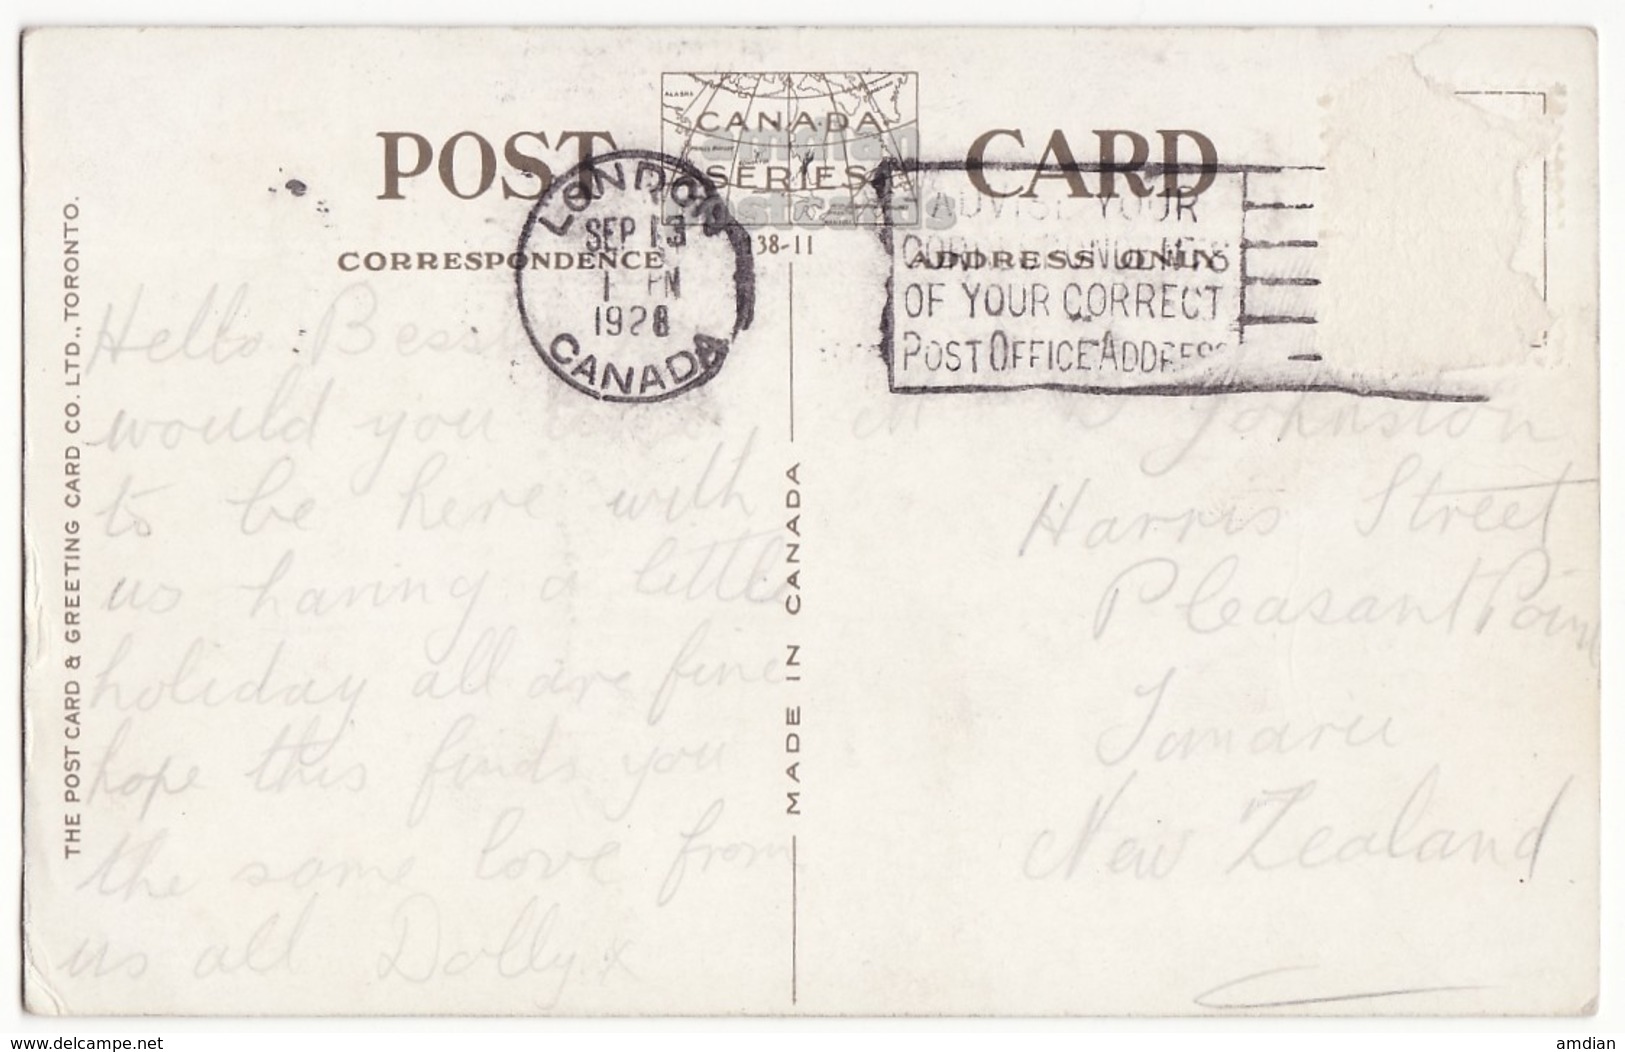 POST CARD
CANADA
SERIES
ALASKA
138-11
CORRESPONDENCE
ADDRESS ONLY
LONDON
SEP 13
1 PM
1928
CANADA
ADVISE YOUR
CORRESPONDENTS
OF YOUR CORRECT
POST OFFICE ADDRESS
THE POST CARD & GREETING CARD CO. LTD., TORONTO.
MADE IN CANADA
Hello Bess
would you
to be here with
us having a little
holiday all are fine
hope this finds you
the same love from
us all Dolly x
Johnston
Harris Street
Pleasant Point
Timaru
New Zealand
amdian
postcards
www.delcampe.net
amdian